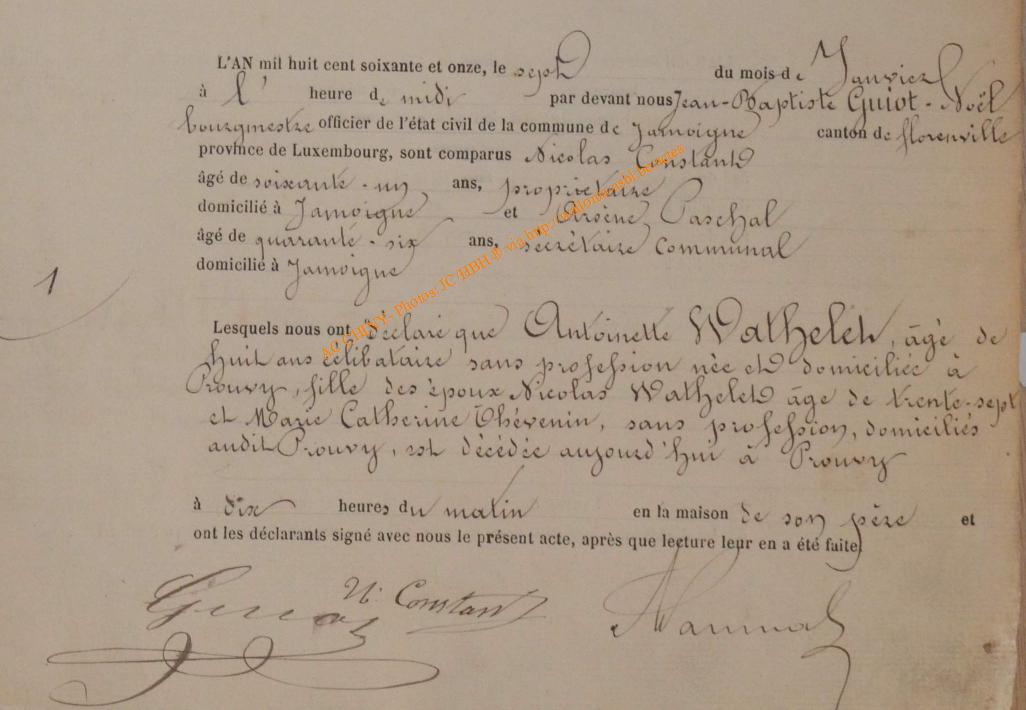 L'AN mil huit cent soixante et onze, le sept du mois de Janvier
à l' heure de midi par devant nous Jean-Baptiste Guiot-Noël
bourgmestre officier de l'état civil de la commune de Jamoigne canton de florenville
province de Luxembourg, sont comparus Nicolas Constant
âgé de soixante-un ans, propriétaire
domicilié à Jamoigne et Arsène Paschal
âgé de quarante-six ans, secrétaire communal
domicilié à Jamoigne
1
Lesquels nous ont déclaré que Antoinette Wathelet, âgé de
huit ans célibataire sans profession née et domiciliée à
Prouvy, fille des époux Nicolas Wathelet âge de trente-sept
et Marie Catherine Thévenin, sans profession, domiciliés
audit Prouvy, est décédée aujourd'hui à Prouvy
à dix heures du matin en la maison de son père et
ont les déclarants signé avec nous le présent acte, après que lecture leur en a été faite
N. Constant